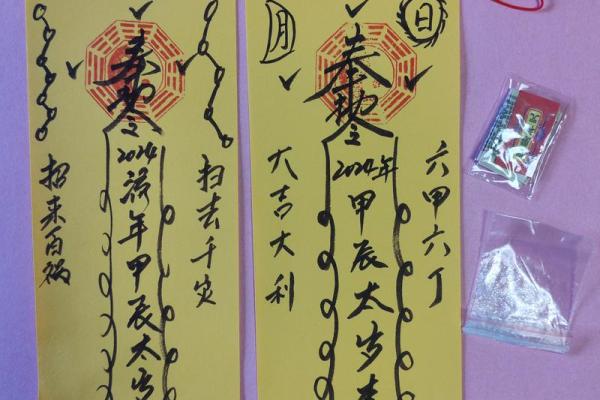 奉勅令
2024
年甲辰太岁
扫去千灾
招来百
月
日
奉勅令
2024年
甲辰太岁
六甲六丁
大吉大利